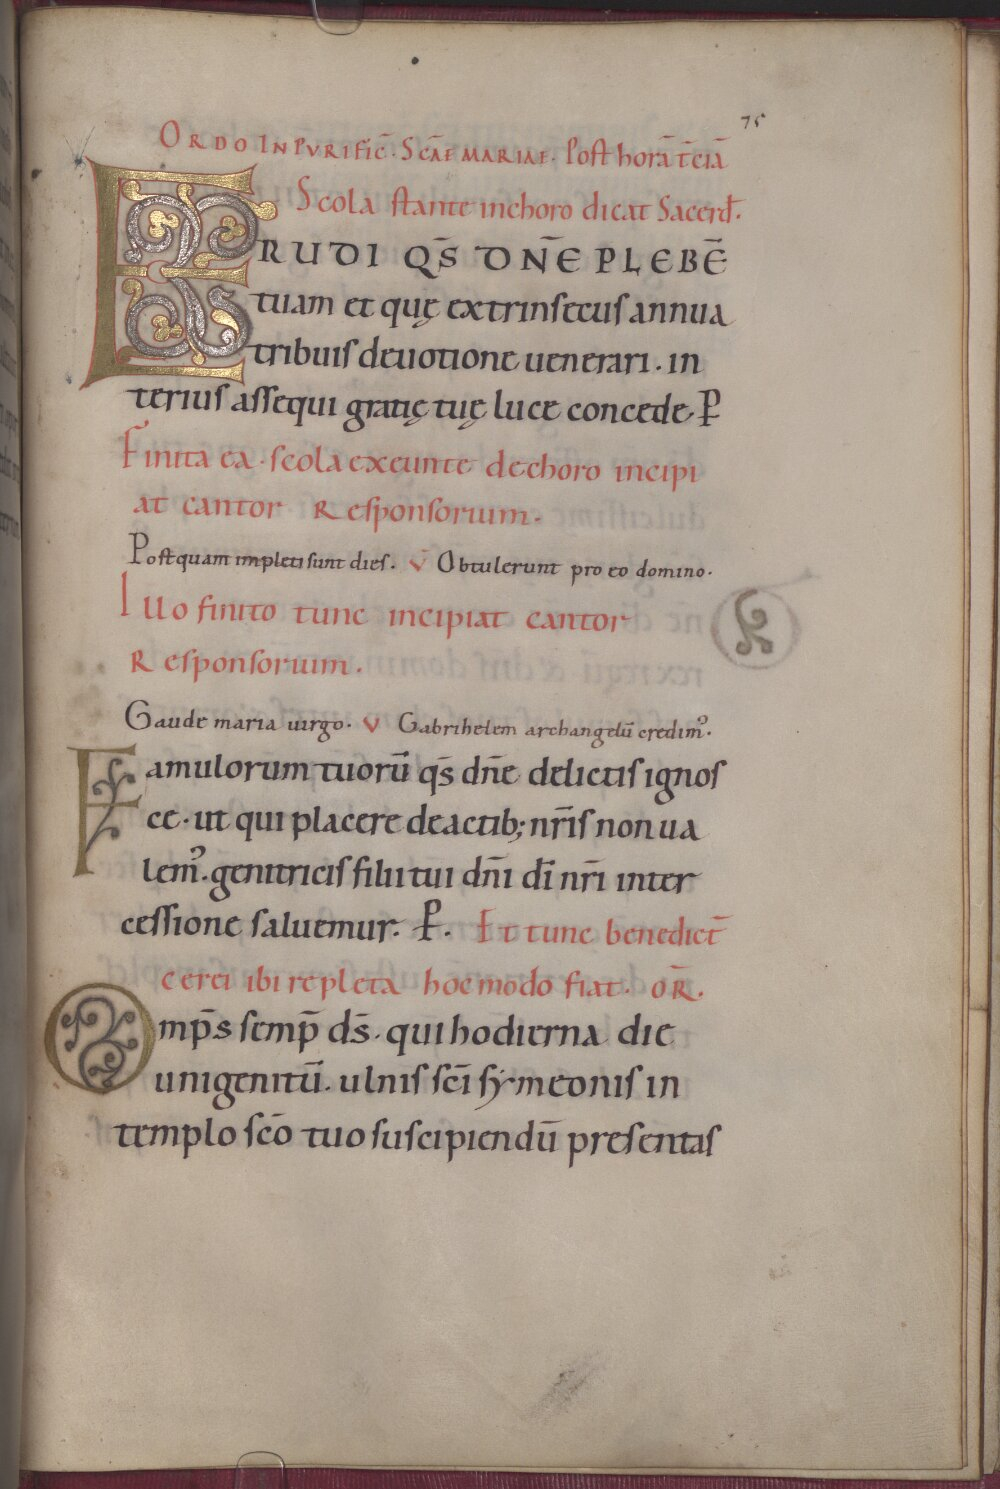 75
ORDO IN PURIFIC̄. SC̄AE MARIAE. Post horā t̄ciā
Scola stante in choro dicat Sacerd̄.
ERUDI QS̄ DN̄E PLEBĒ
tuam et quę extrinsecus annua
tribuis deuotione uenerari. in
terius assequi gratię tuę luce concede. P̄
Finita ea. scola exeunte de choro incipi
at cantor Responsorium.
Postquam impleti sunt dies. V̄ Obtulerunt pro eo domino.
Illo finito tunc incipiat cantor
Responsorium.
Gaude maria uirgo. V Gabrihelem archangelū credim᾽.
Famulorum tuorū qs̄ dn̄e delictis ignos
ce. ut qui placere de actib; nr̄is non ua
lem᾽. genitricis filii tui dn̄i dī nr̄i inter
cessione saluemur. P̄. Et tunc benedict̄
cerei ibi repleta hoc modo fiat. OR̄.
Omp̄s semp̄ ds̄. qui hodierna die
unigenitū. ulnis sc̄i symeonis in
templo sc̄o tuo suscipiendū presentas